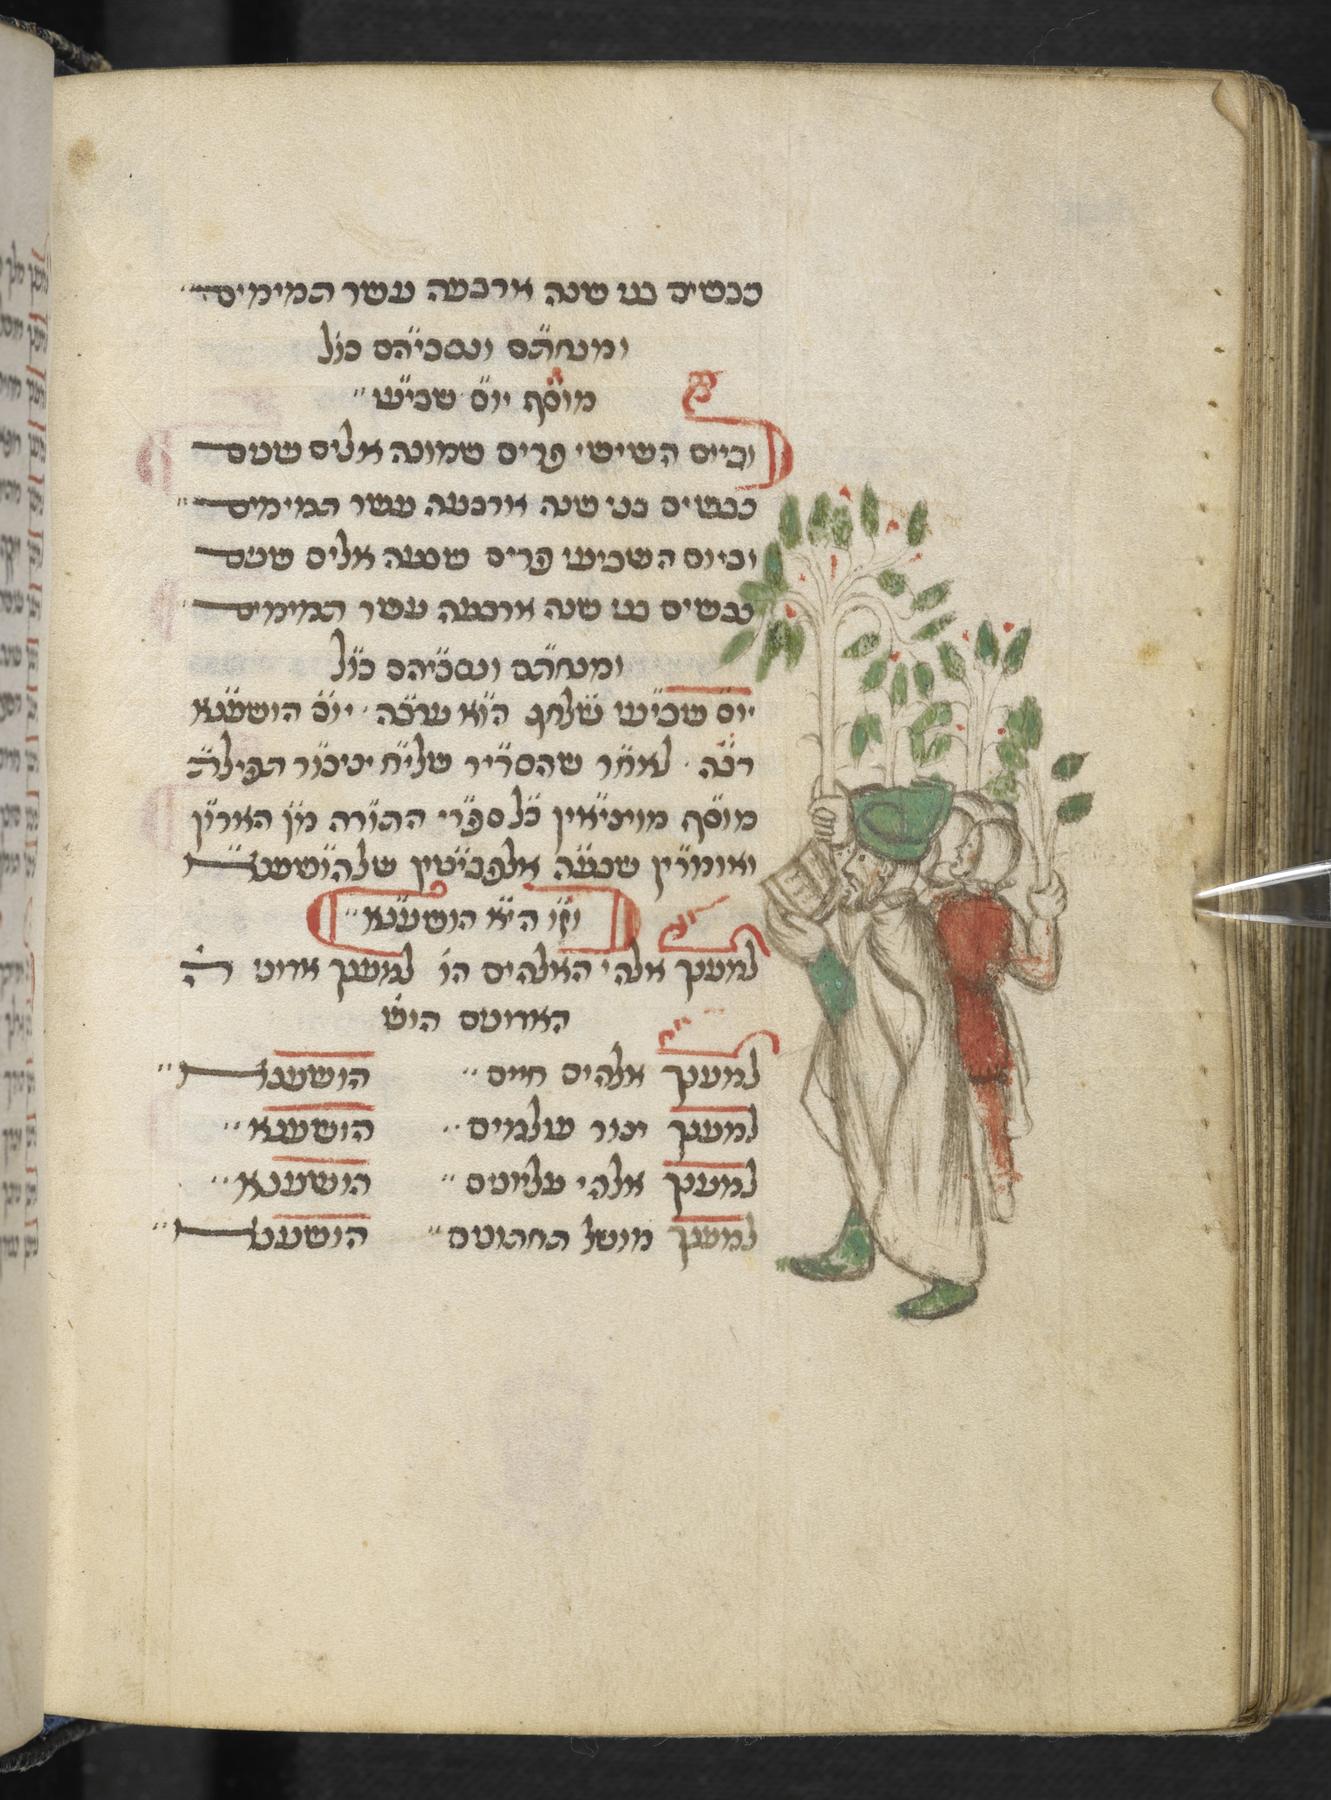 כבשים בני שנה ארבעה עשר תמימים
ומנחת̈ם ונסכי̈הם כו̈ל
מוס̈ף יו̈ם שבי̈ש
וביום השישי פרים שמונה אלים שנים
כבשים בני שנה ארבעה עשר תמימים
וביום השביעי פרים שבעה אלים שנים
כבשים בני שנה ארבעה עשר תמימים
ומנחת̈ם ונסכ̈יהם כ̈ול
יו̈ם שבי̈ש של̈חג הו̈א ער̈בה יו̈ם הושע̈נא
רב̈ה לאח̈ר שהסד̈יר שלי̈ח ציבו̈ר תפיל̈ת
מוס̈ף מוצי̈אין כ̈ל ספר̈י התו̈רה מ̈ן האר̈ון
ואומר̈ין שבע̈ה אלפבי̈טין שלהו̈שענא
וז̈ו הי̈א הושע̈נא
למענך אלהי האלהים הו למענך אדוני ה
האדונים הוש
למענך אלהים חיים הושענא
למענך יצור עולמים הושענא
למענך אלהי עליונים הושענא
למענך מושל תחתונים הושענא